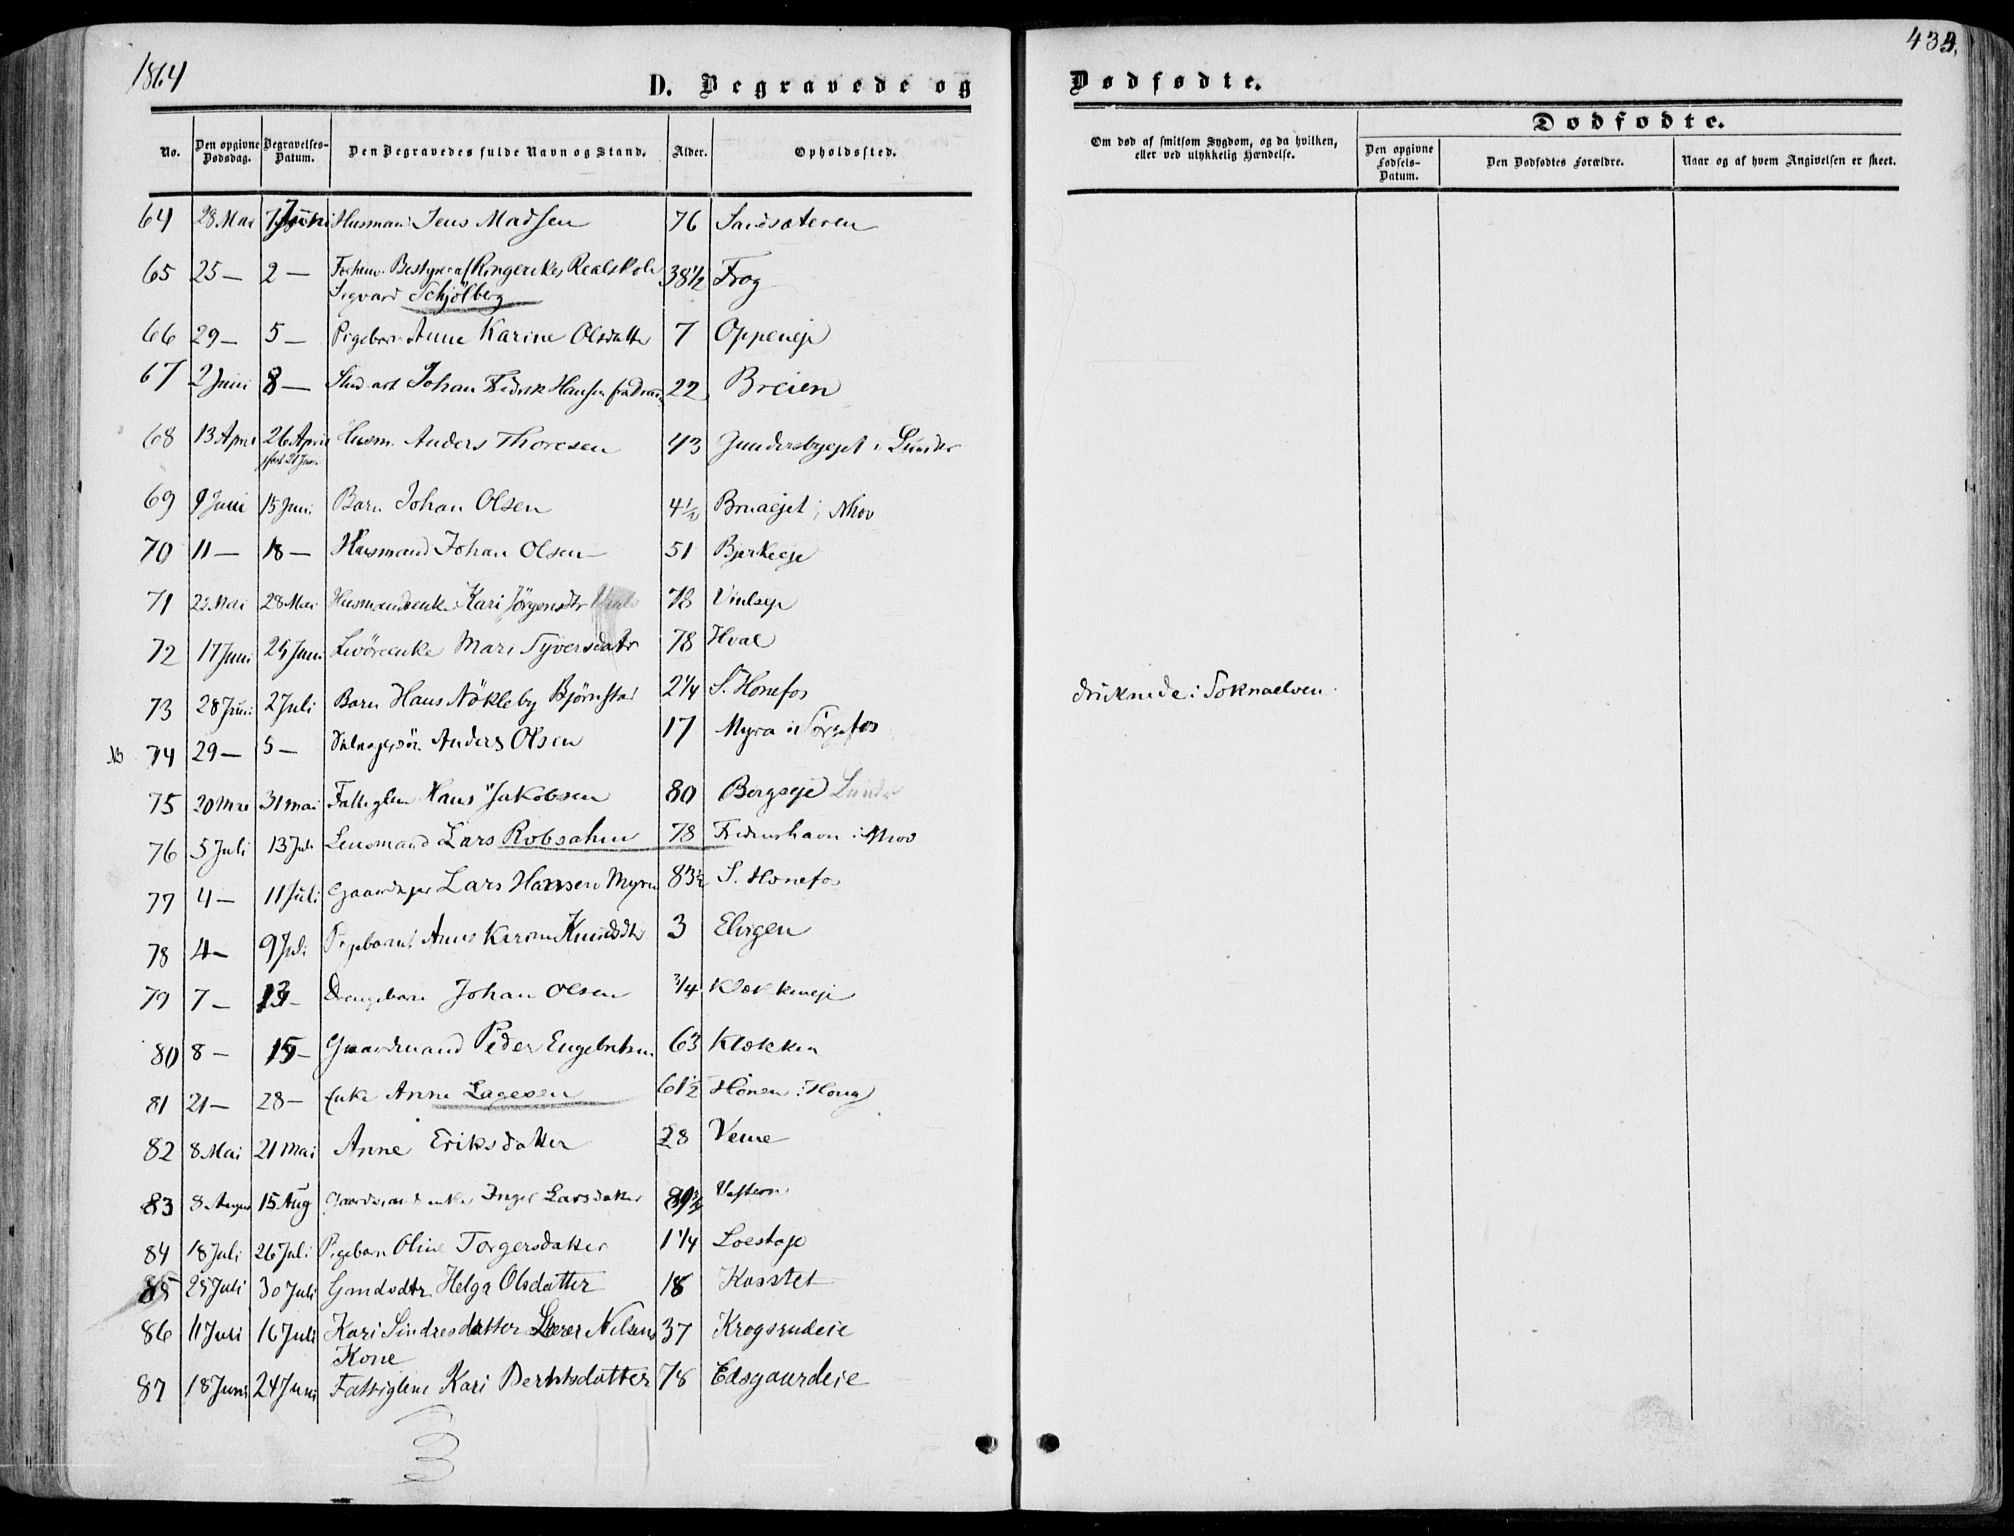 1864
D. Begravede og
Dødfødte.
433.
No.
Den opgivne Dødsdag.
Begravelses-Datum.
Den Begravedes fulde Navn og Stand.
Alder.
Opholdssted.
Om død af smitsom Sygdom, og da hvilken, eller ved ulykkelig Hændelse.
Dødfødte.
Den opgivne Fødsels-Datum.
Den Dødfødtes Forældre.
Naar og af hvem Angivelsen er skeet.
64 28 Mai Juni Husmand Jens Madsen 76
65 25 — 2 — Bestyrer af Ringerikes Realskole 38½ Frog
Sigvard Schjölberg
66 29 — 5 — Pigebarn Anne Karine Olsdatter 7 Oppeneje
67 2 Juni 8 — Johan Fredrik Hansen 22 Breien
68 13 April 26 April Husm. Anders Thoresen 43 i Lunder
69 9 Juni 15 Juni Barn Johan Olsen 4½
70 11 — 18 — Husmand Johan Olsen 51 Bjerkeeje
71 Mai 28 Mai Husmandsenke Kari Jörgensdtr 78
72 17 Juni 25 Juni Mari Syversdatter 78 Hval
73 28 Juni 2 Juli Barn Hans Nökleby Björnstad 2¼ S. Hönefos druknede i Soknaelven
NB 74 29 — 5 — Anders Olsen 17 Myra
75 20 Mai 31 mai Fattiglem Hans Jakobsen 80 Bergseje Lunder
76 5 Juli 13 Juli Lensmand Lars Robsahm 78
77 4 — 11 Juli Lars Hansen Myra 83½ S. Hönefos
78 4 — 9 Juli Pigebarn Anne Karine Knudsdtr 3 Elvigen
79 7 — 13 — Drengebarn Johan Olsen ¾ Klækkeneje
80 8 — 15 — Gaardmand Peder Engebretsen 63 Klækken
81 21 — 28 — Enke Anne Lagesen 61½ Hönen i Houg
82 8 Mai 21 Mai Anne Eriksdatter 28 Veme
83 8 August 15 Aug Gaardmandsenke Inger Larsdatter
84 18 Juli 26 Juli Pigebarn Oline Torgersdatter 1¼
85 25 Juli 30 Juli Helga Olsdatter 18
86 11 Juli 16 Juli Kari Sindresdatter Lærer Nilsens 37 Krogsrudeie
Kone
87 18 Juni 24 Juni Fattiglem Kari Berntsdatter 78 Edsgaardeie